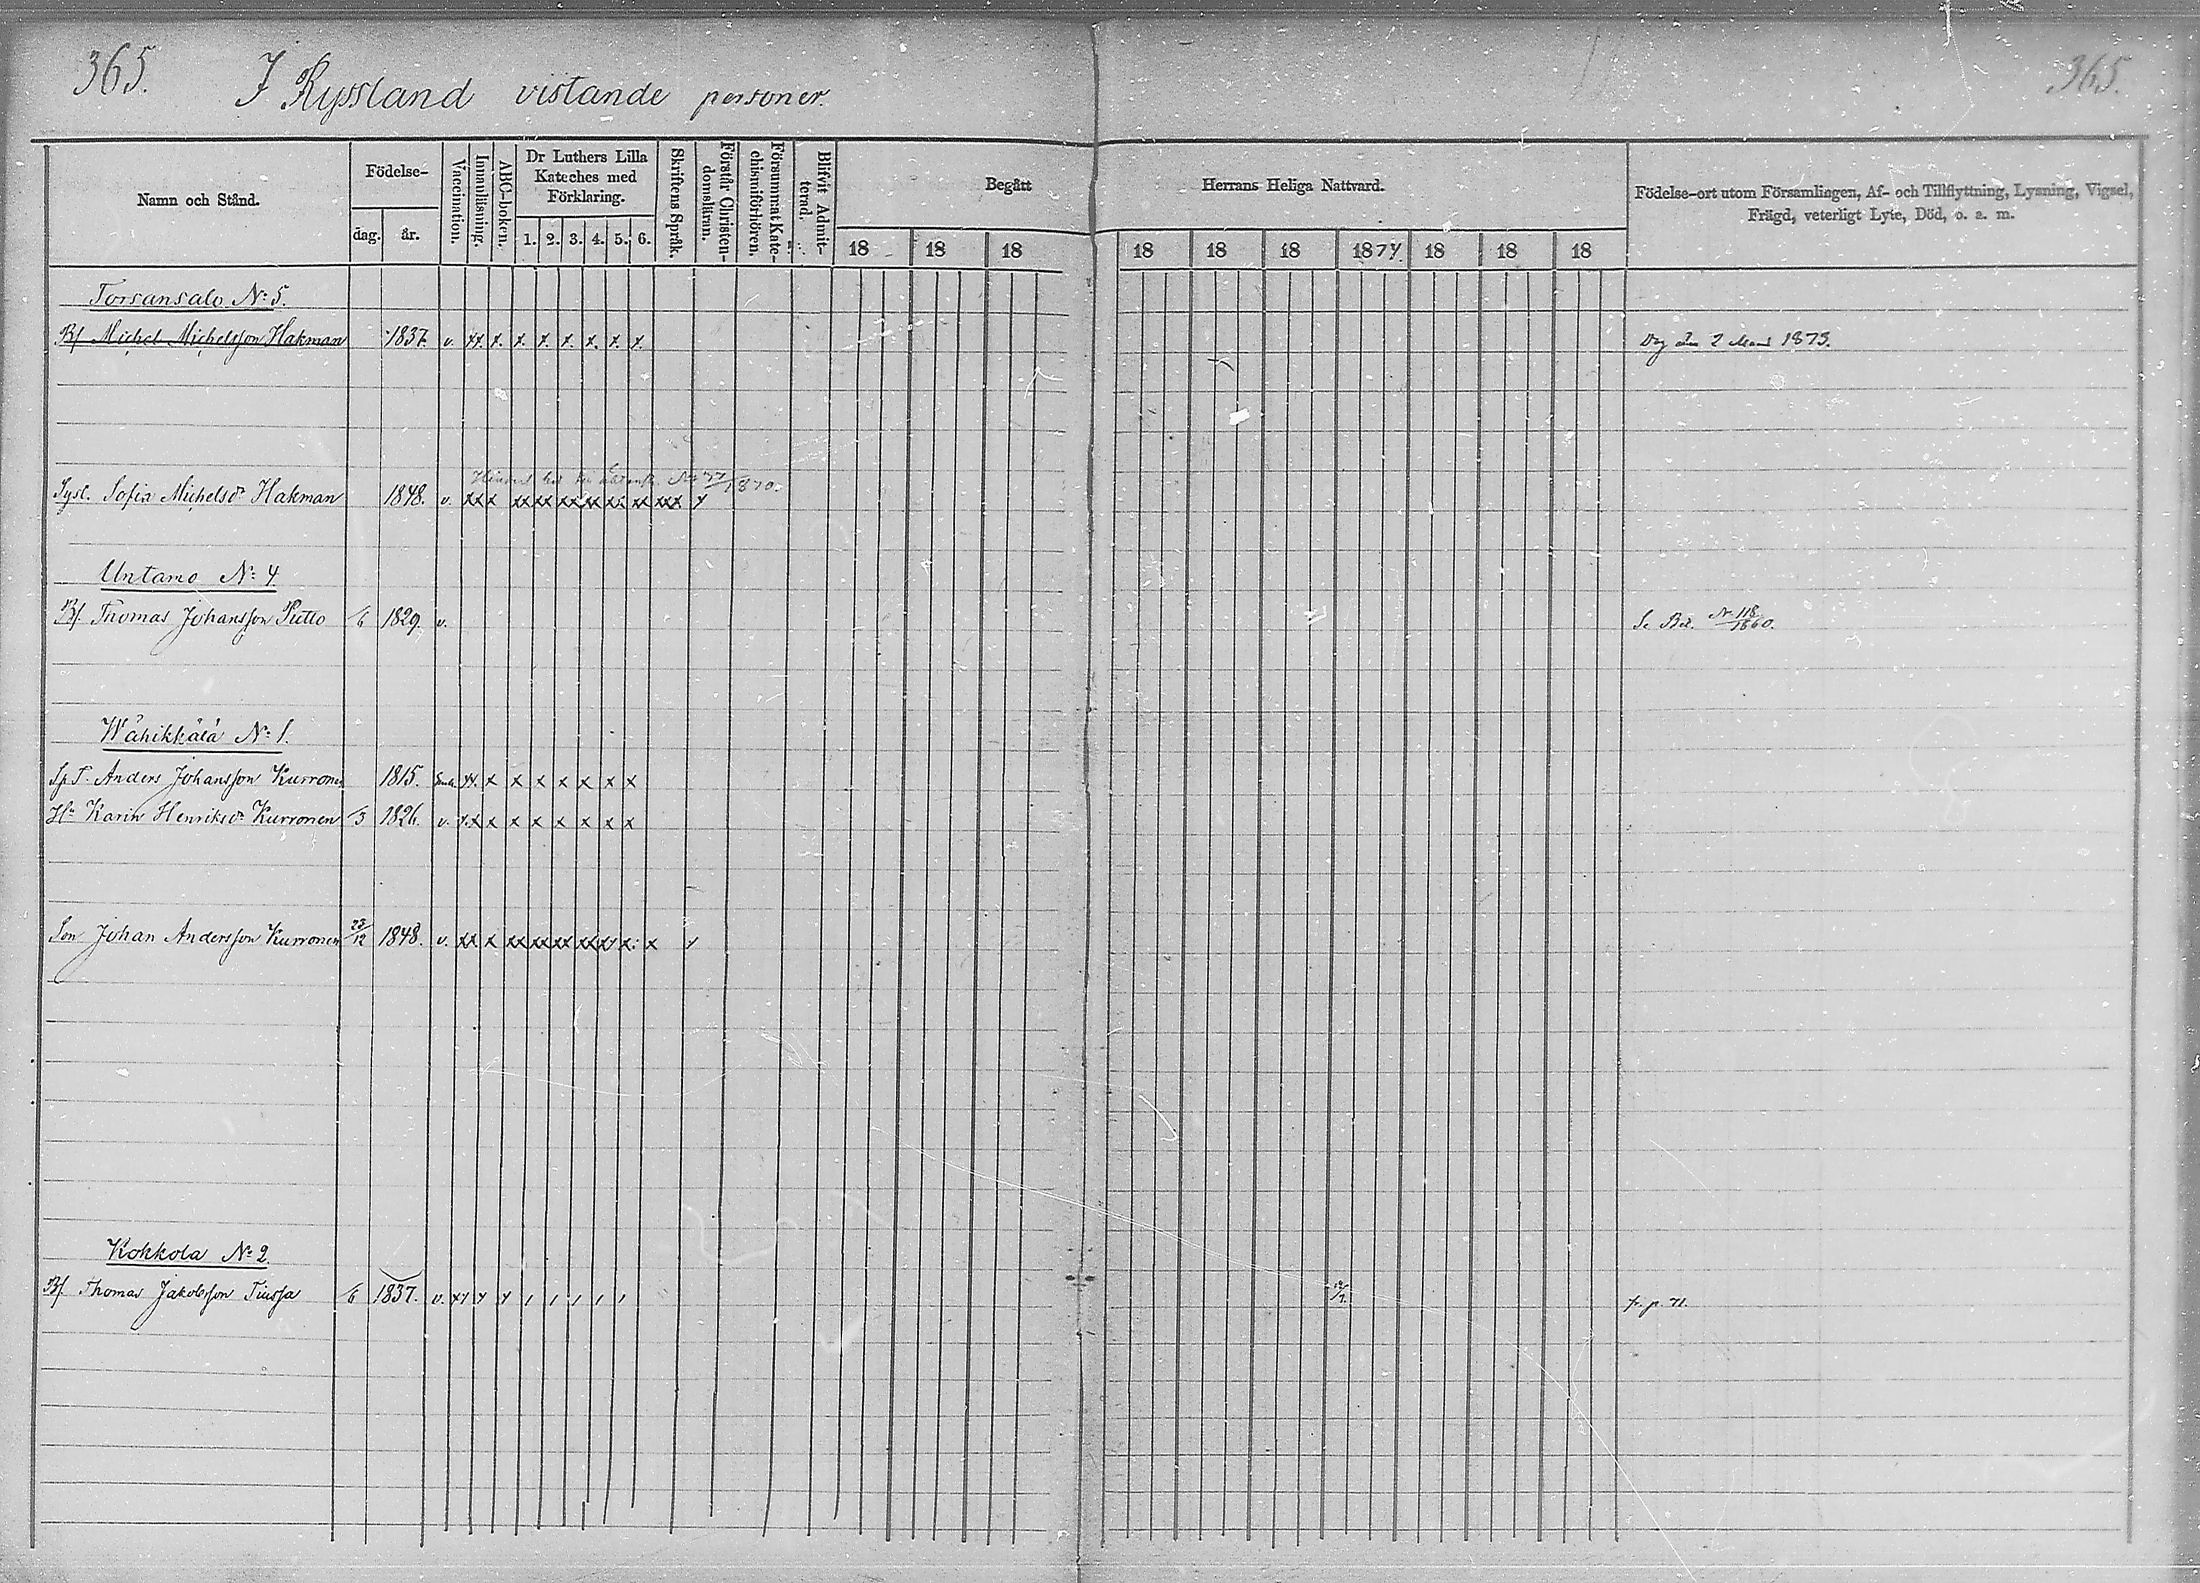 365.
I Ryssland vistande personer.
365.
Namn och Stånd.
Födelse-
dag.
år.
Vaccination.
Innanläsning.
ABC-boken.
Dr Luthers Lilla
Kateches med
Förklaring.
1. 2. 3. 4. 5. 6.
Skriftens Språk.
Förstår Christen-
domsläran.
Försummat Kate-
chismiförhören.
Blifvit Admit-
terad.
Begått
Herrans Heliga Nattvard.
18 18 18 18 18 18 1874. 18 18 18
Födelse-ort utom Församlingen, Af- och Tillflyttning, Lysning, Vigsel,
Frägd, veterligt Lyte, Död, o. s. m.
Torsansalo N:5.
Bf Michel Michelsson Hakman 1837. v. xx. x. x. x. x. x. x. x. 2 1873.
N: 77/1870.
Syst. Sofia Michelsdr Hakman 1848. v. xxx xx xx xx xx xx xx xxx x
Untamo N:4
Bf. Thomas Johansson Putto /6 1829. v. Se Bil. N: 118/1860.
Wähikkälä N:1.
Sp T. Anders Johansson Kurronen 1815. xx. x x x x x x x
Hu Karin Henriksdr Kurronen /3 1826. v. x.x x x x x x x
Son Johan Andersson Kurronen 23/12 1848. v. xx x xx xx xx xx x x
Kokkola N:2.
Bf. Thomas Jakobsson Tiussa /6 1837. v. fr. p. 71.